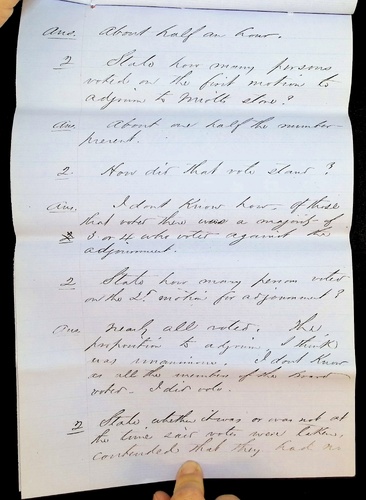 Ans. About half an hour.
Q State how many persons
voted on the first motion to
adjourn to Mott's store?
Ans. About one half the number
present.
Q How did that vote stand?
Ans. I dont know how. Of those
that voted there was a majority of
3 or 4 who voted against the
adjournment.
Q State how many person voted
on the 2d motion for adjournment?
Ans Nearly all voted. The
proposition to adjourn I think
was unanimous. I dont know
as all the members of the Board
voted. I did vote.
Q State whether it was or was not at
the time said votes were taken,
contended that they had no